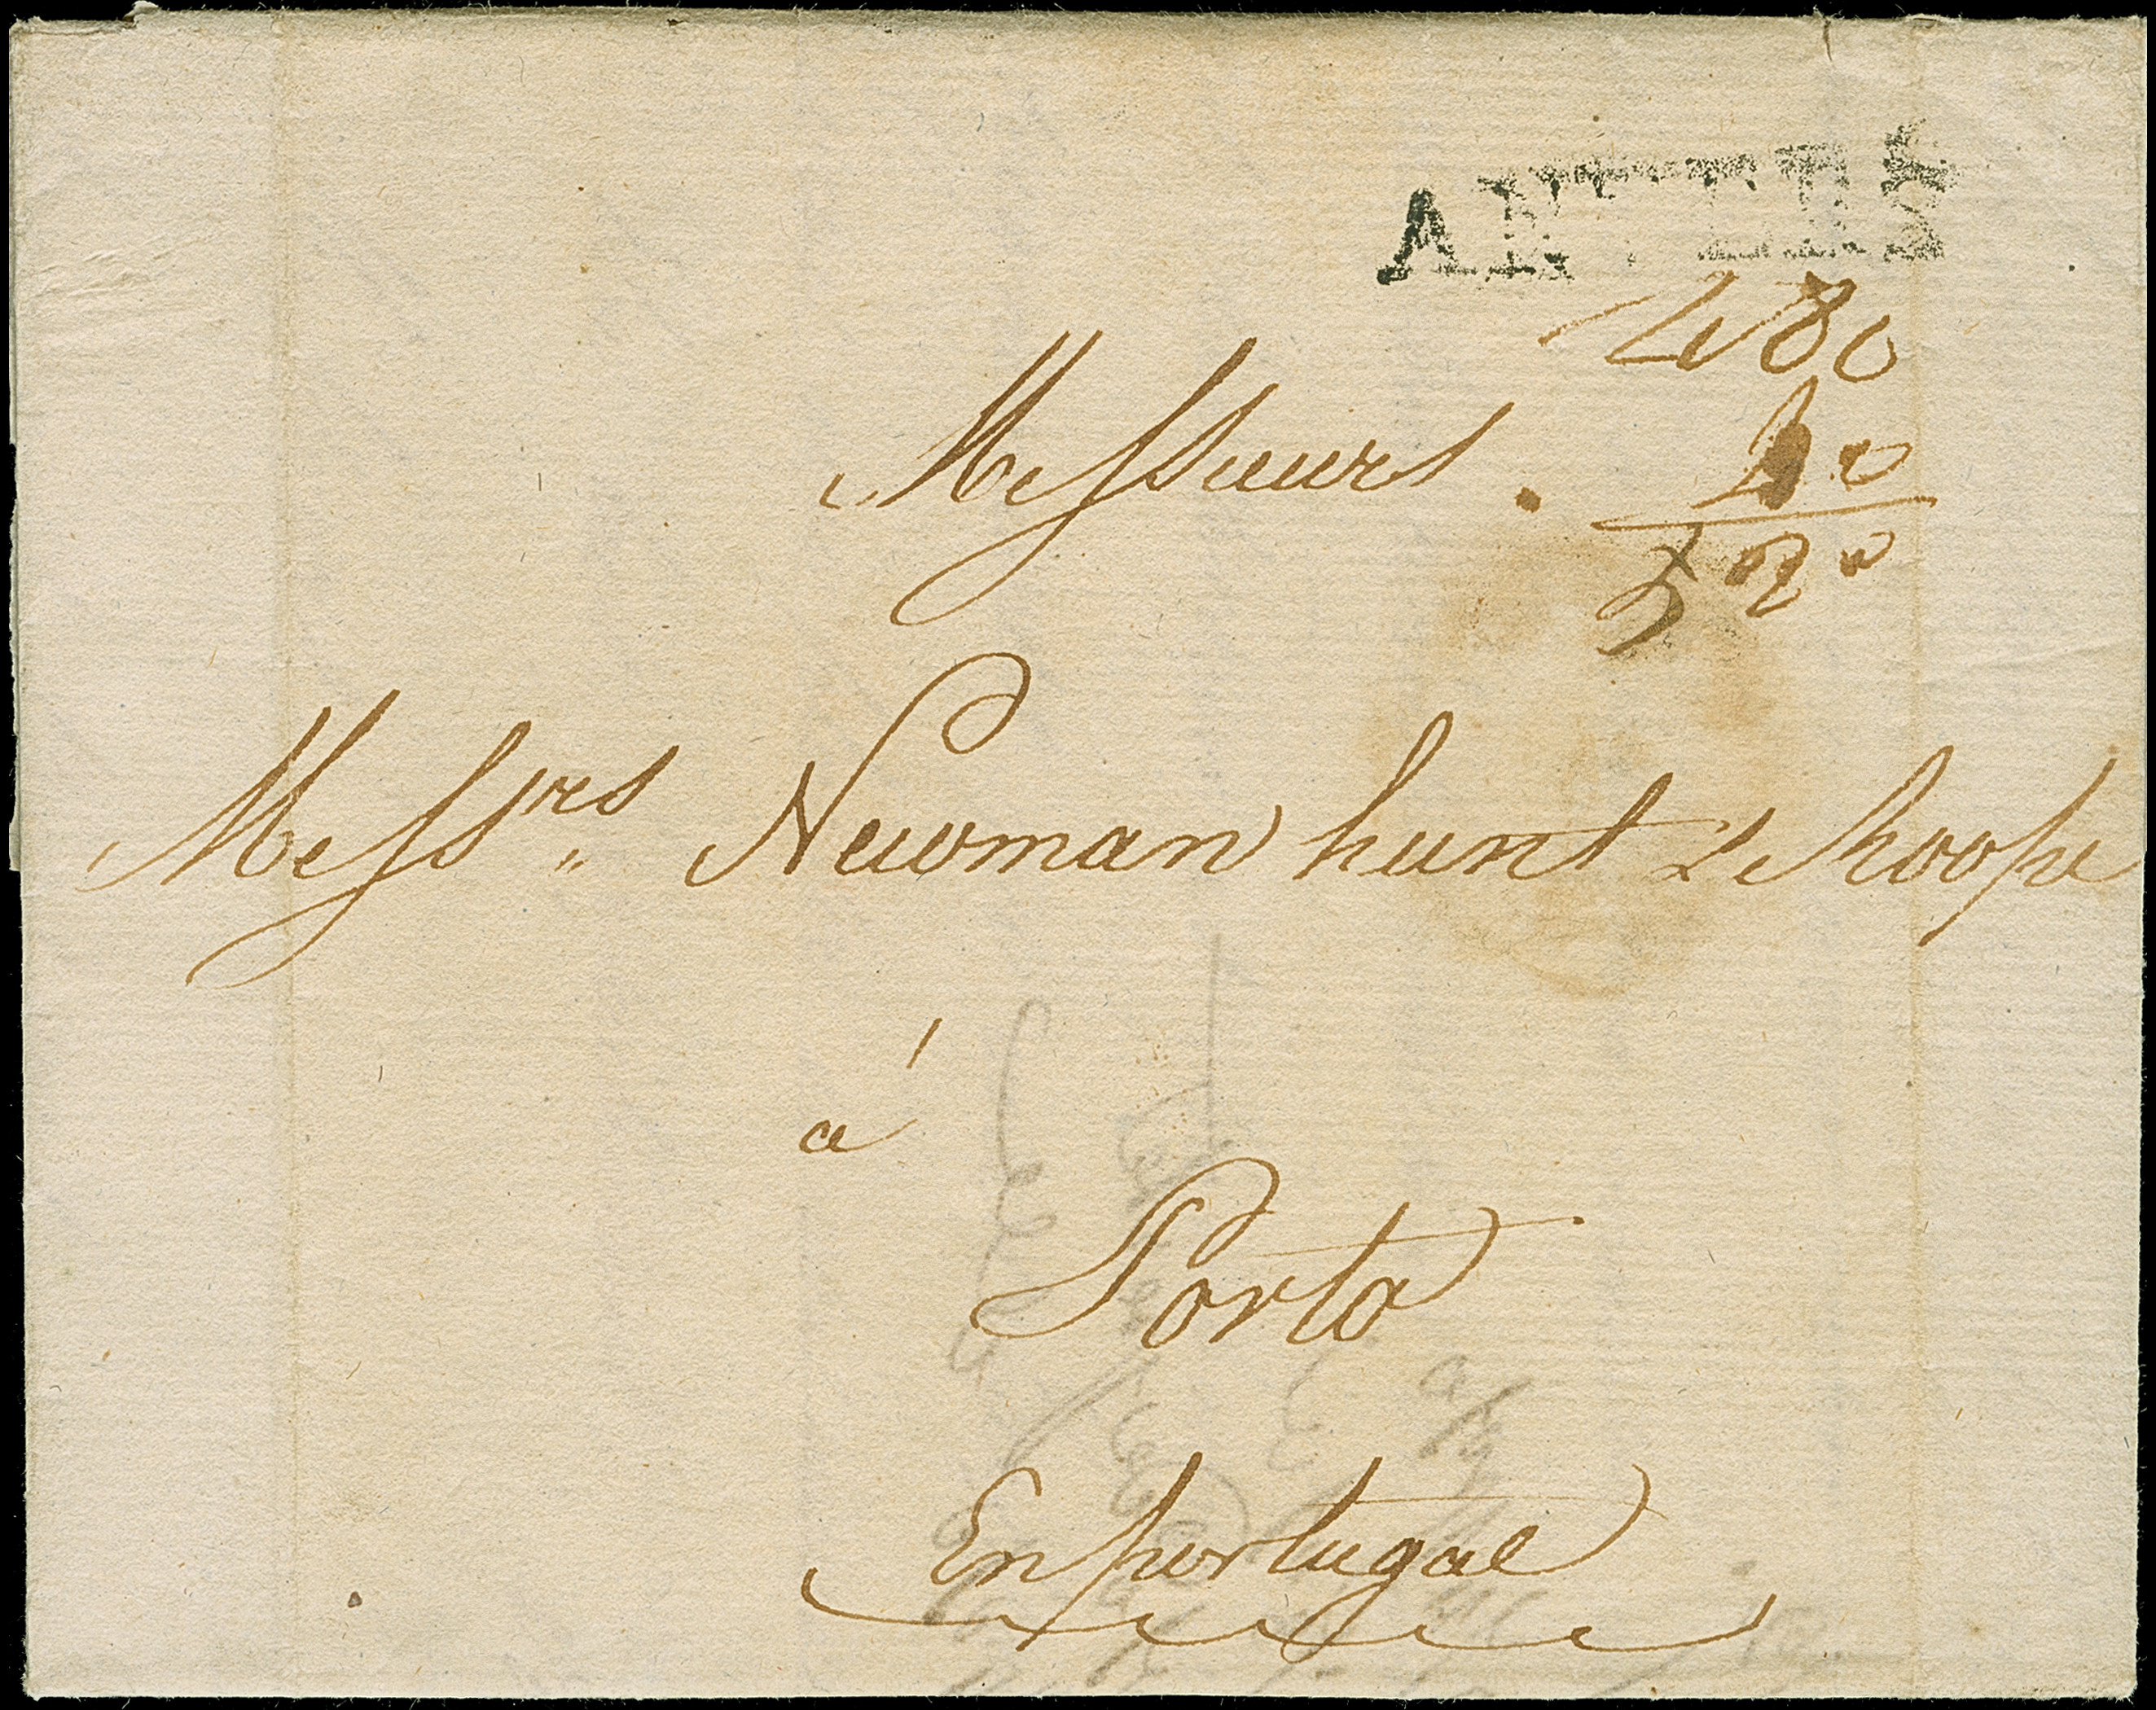 ANVERS
480
40
520
Messieurs
Messrs Newman hunt & Roope
à
Porto
En portugal